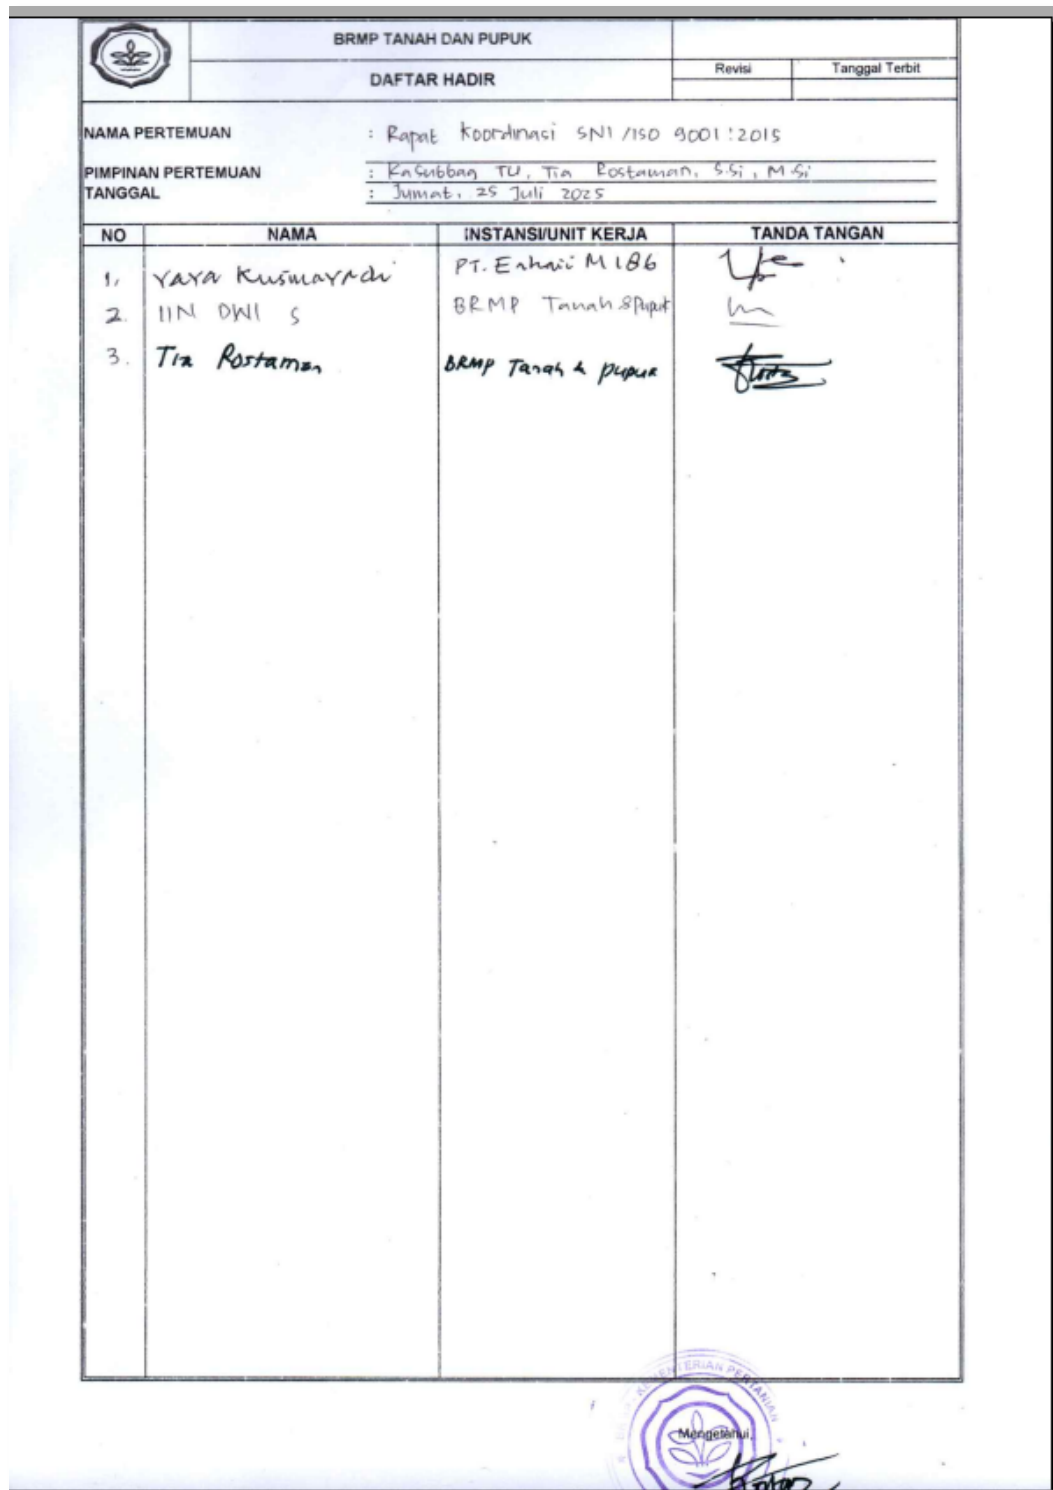 BRMP TANAH DAN PUPUK
DAFTAR HADIR
Revisi Tanggal Terbit
NAMA PERTEMUAN : Rapat Koordinasi SNI/ISO 9001:2015
PIMPINAN PERTEMUAN : Kasubbag TU, Tia Rostaman, S.Si, M.Si
TANGGAL : Jumat, 25 Juli 2025
NO NAMA INSTANSI/UNIT KERJA TANDA TANGAN
1, Yaya Kusmayadi PT. M 186
2. IIN DWI S BRMP Tanah & Pupuk
3. Tia Rostaman BRMP Tanah & pupuk
KEMENTERIAN PERTANIAN
Mengetahui,